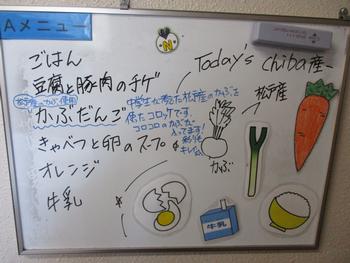 Aメニュー
ごはん
豆腐と豚肉のチゲ
松戸産のかぶ使用
かぶだんご
きゃべつと卵のスープ
オレンジ
牛乳
Today's chiba産
中学生が考えた松戸産のかぶを
使たコロッケです。
コロコロのかぶが
入ってます!
松戸産
かぶ
牛乳